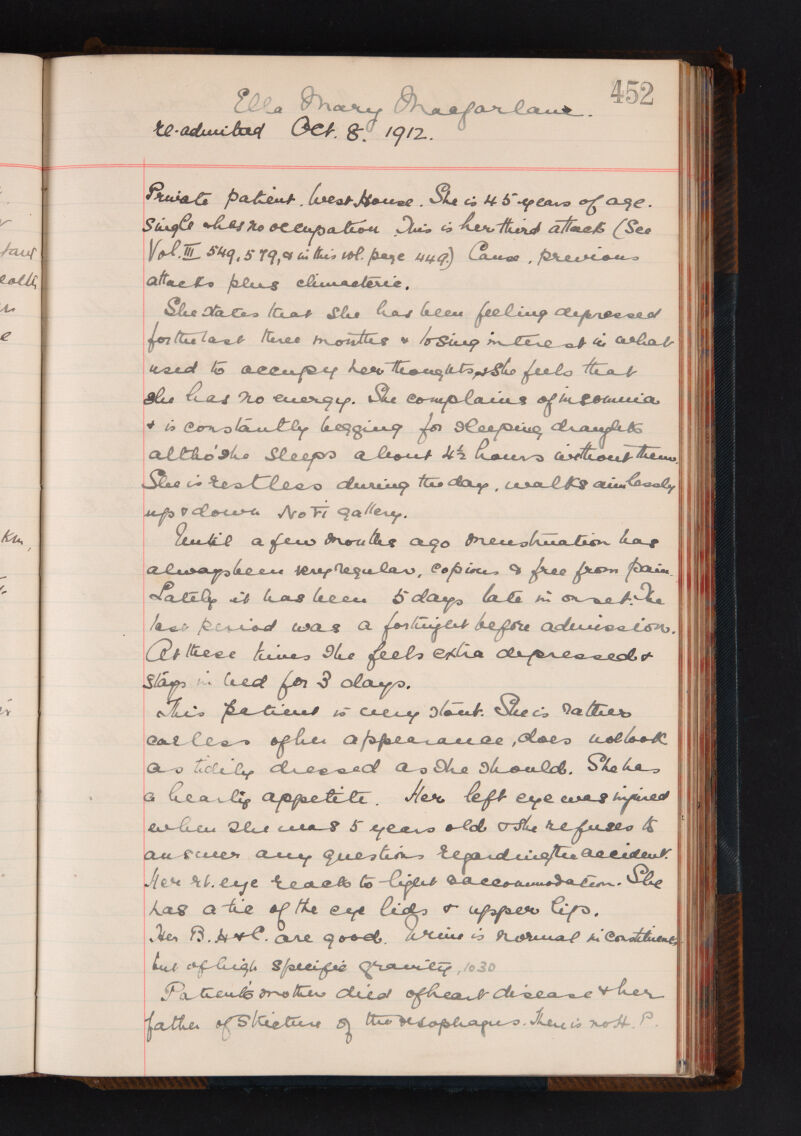 452
Ella Mary Macfarlane.
re-admitted Oct. 8. 1912.
Private patient. West House. She is 45 years of age.
Single & has no occupation. This is her third attack (See
Vol. III 549, 579, & in this vol. page 449) Cause, previous
attacks plus climacteric.
She states that she has been feeling depressed
for the last three months & losing interest in what
used to occupy her thoughts, & she feels that
she has no energy. She complains of insomnia
& is constantly begging for sleeping draughts
altho' she sleeps about 4½ hours without them.
She is restless during the day, walks aimlessly
up & down No VI gallery.
Until a few months ago menstruation has
always been very regular, copious & free from pain.
Lately it has been 5 days late in onset. The
last period was a fortnight before admission.
At these times she feels extra depressed &
stays in bed for 3 days.
This patient is very stout. She is rather
careless of her appearance, does not look
as tidily dressed as she should. She has
a hearty appetite. Her left eye was injured
when she was 5 years old & she refuses to
answer any questions regarding the accident.
Her rt. eye reacts to light & accommodation. She
has a tic of the eye lids & upper lip.
Her B. H & L. are good. Urine is normal in constituents
but of high specific gravity, 1030
Patient's mother died of heart disease & her
father of stricture of the oesophagus. There is no H. P.
tand
ealth
in
e
Km,